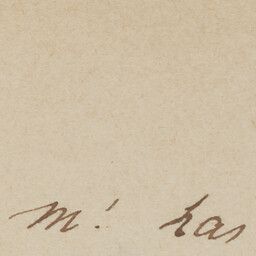 m! has